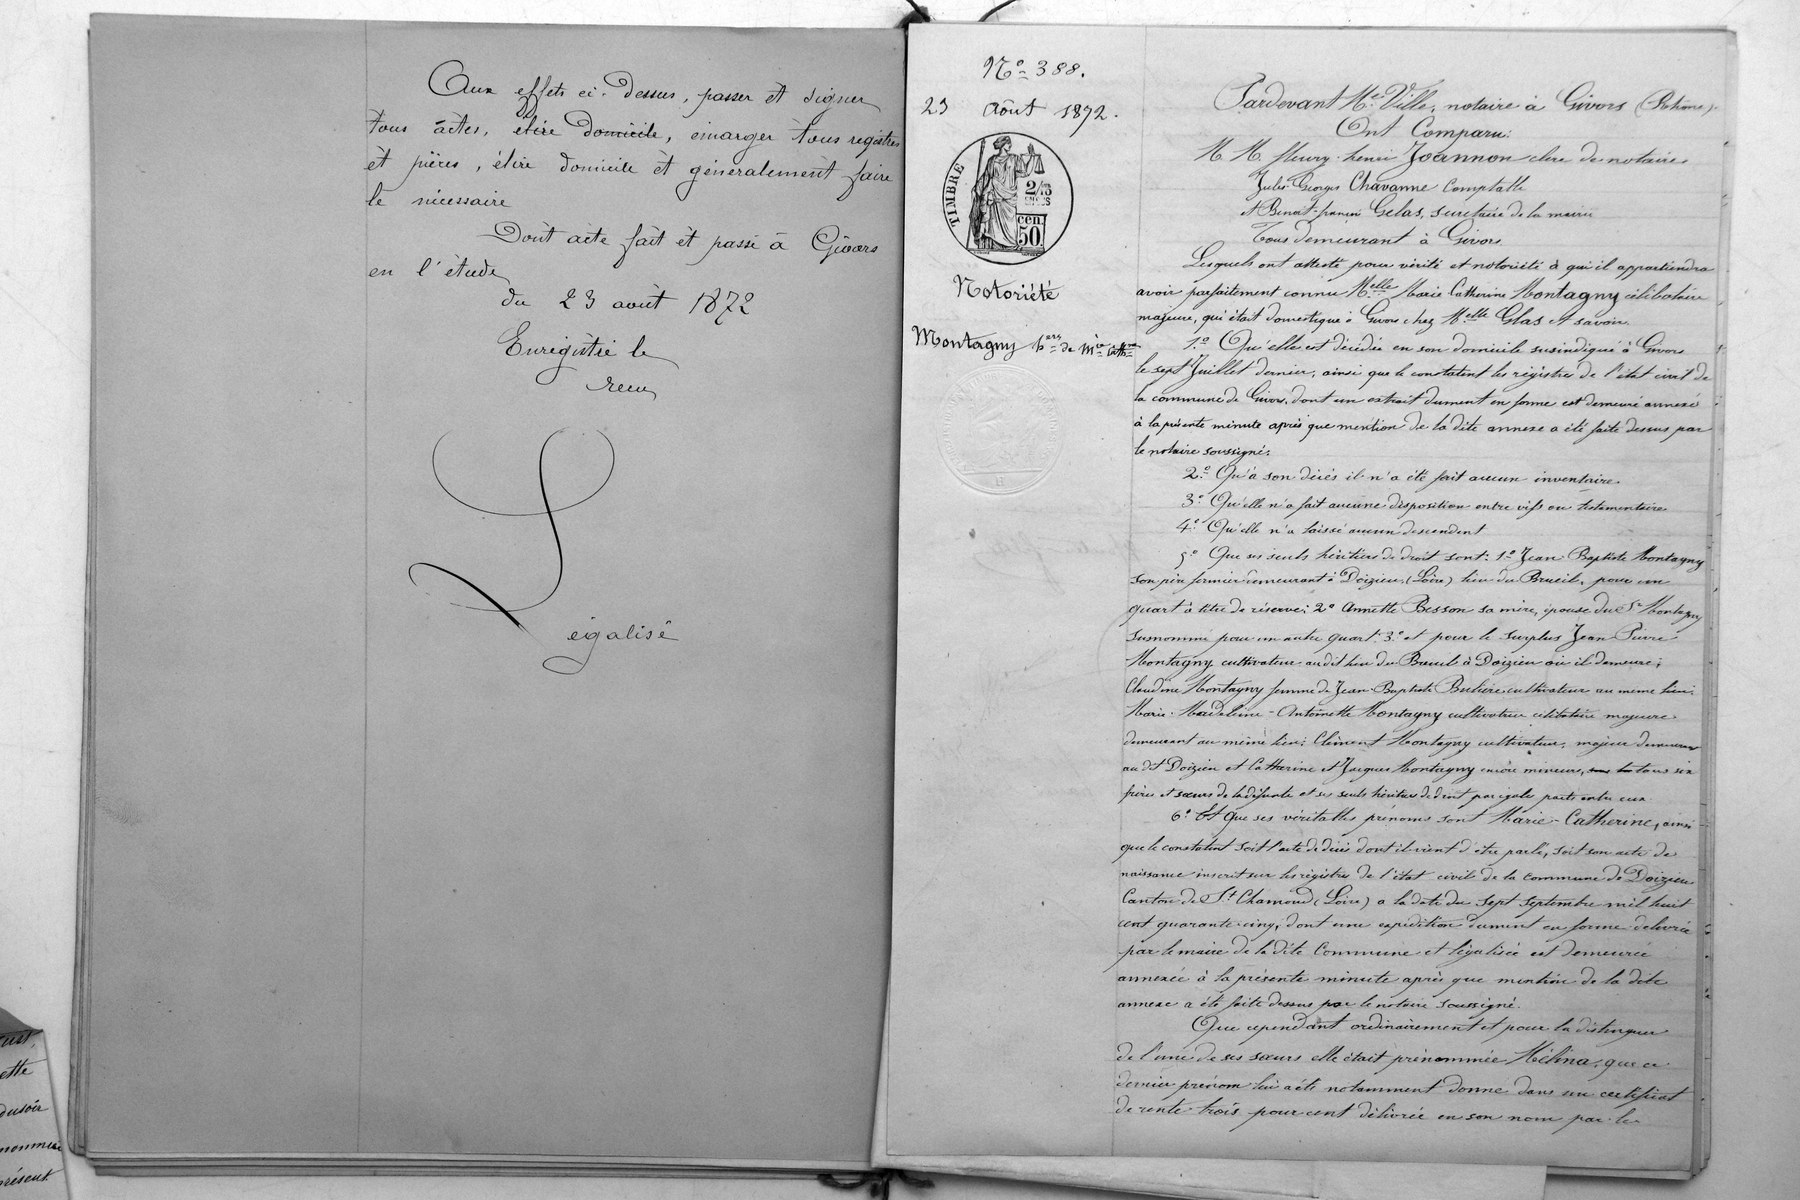 Aux effets ci-dessus, passer et signer
tous actes, élire domicile, émarger tous registres
et pièces, élire domicile et généralement faire
le nécessaire
Dont acte fait et passé à Givors
en l'étude
du 23 août 1872
Enregistré le
recu
Légalisé
No 388.
23 Août 1872.
TIMBRE
2/10
EN SUS
50 cen.
Notoriété
Montagny hers de Mie Cathne
Pardevant Me Ville, notaire à Givors (Rhône).
Ont Comparu:
M. M. fleury-henri Joannon clerc de notaire
Jules-Georges Chavanne Comptable
et Benoit-françois Gelas, secrétaire de la mairie
Tous demeurant à Givors
Lesquels ont attesté pour vérité et notoriété à qui il appartiendra
avoir parfaitement connu Melle Marie Catherine Montagny célibataire
majeure, qui était domestique à Givors chez Melle Glas et savoir.
1o Qu'elle est décédée en son domicile susindiqué à Givors
le sept Juillet dernier, ainsi que le constatent les régistres de l'état civil de
la commune de Givors, dont un extrait dument en forme est demeuré annexé
à la présente minute après que mention de la dite annexe a été faite dessus par
le notaire soussigné;
2o Qu'à son décès il n'a été fait aucun inventaire
3o Qu'elle n'a fait aucune disposition entre vifs ou testamentaire
4o Qu'elle n'a laissé aucun descendent
5o Que ses seuls héritiers de droit sont: 1o Jean Baptiste Montagny
son père fermier demeurant à Doizieu (Loire) lieu du Breuil, pour un
quart à titre de réserve; 2o Annette Besson sa mère, épouse du Sr Montagny
susnommé pour un autre quart 3o et pour le surplus Jean Pierre
Montagny cultivateur audit lieu du Breuil à Doizieu où il demeure;
Claudine Montagny femme de Jean-Baptiste cultivateur au même lieu;
Marie-Madeleine-Antoinette Montagny cultivatrice célibataire majeure
demeurant au même lieu; Clément Montagny cultivateur, majeur demeurant
au dit Doizieu et Catherine et Jacques Montagny encore mineurs, tous six
frères et sœurs de la défunte et ses seuls héritiers de droit par égale part entre eux.
6o Et que ses véritables prénoms sont Marie-Catherine, ainsi
que le constatent soit l'acte de décès dont il vient d'être parlé, soit son acte de
naissance inscrit sur les régistres de l'état civil de la commune de Doizieu
Canton de St Chamond (Loire) a la date du sept septembre mil huit
cent quarante-cinq, dont une expédition dument en forme délivrée
par le maire de la dite Commune et légalisée est demeurée
annexée à la présente minute après que mention de la dite
annexe a été faite dessus par le notaire soussigné.
Que cependant ordinairement et pour la distinguer
de l'une de ses sœurs elle était prénommée Mélina, que ce
dernier prénom lui a été notamment donné dans un certificat
de rente trois pour cent délivrée en son nom par le
ette
présent